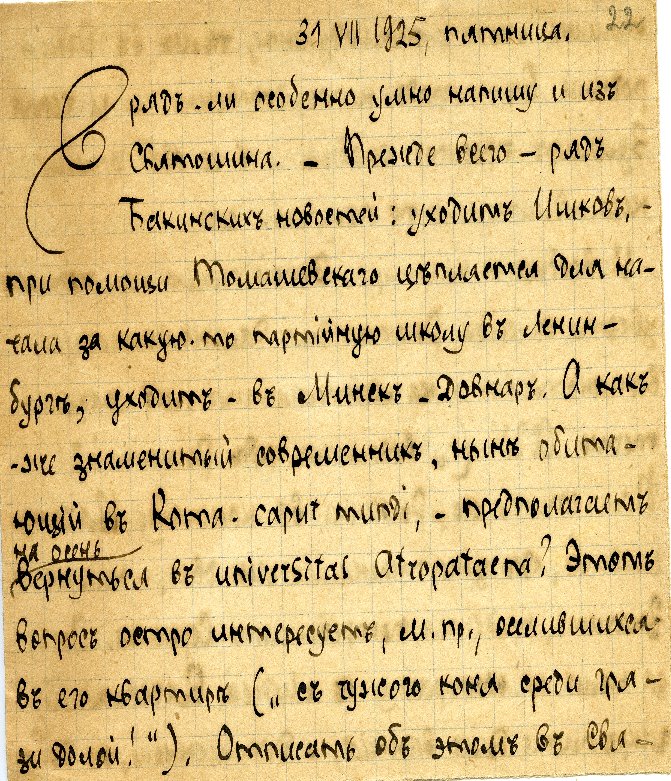 22
31 VII 1925, пятница.
Врядъ-ли особенно умно напишу и изъ
Святошина. – Прежде всего – рядъ
Бакинскихъ новостей: уходитъ Ишковъ, –
при помощи Томашевскаго цѣпляется для на-
чала за какую-то партійную школу въ Ленин-
бургѣ, уходитъ – въ Минскъ – Довнаръ. А какъ
-же знаменитый современникъ, нынѣ обита-
ющій въ Roma-caput mundi, – предполагаетъ
на осень
вернуться въ universitas Atropataena? Этотъ
вопросъ остро интересуетъ, м. пр., оселившихся
въ его квартирѣ („съ чужого коня среди гря-
зи долой!“). Отписать объ этомъ въ Свя-